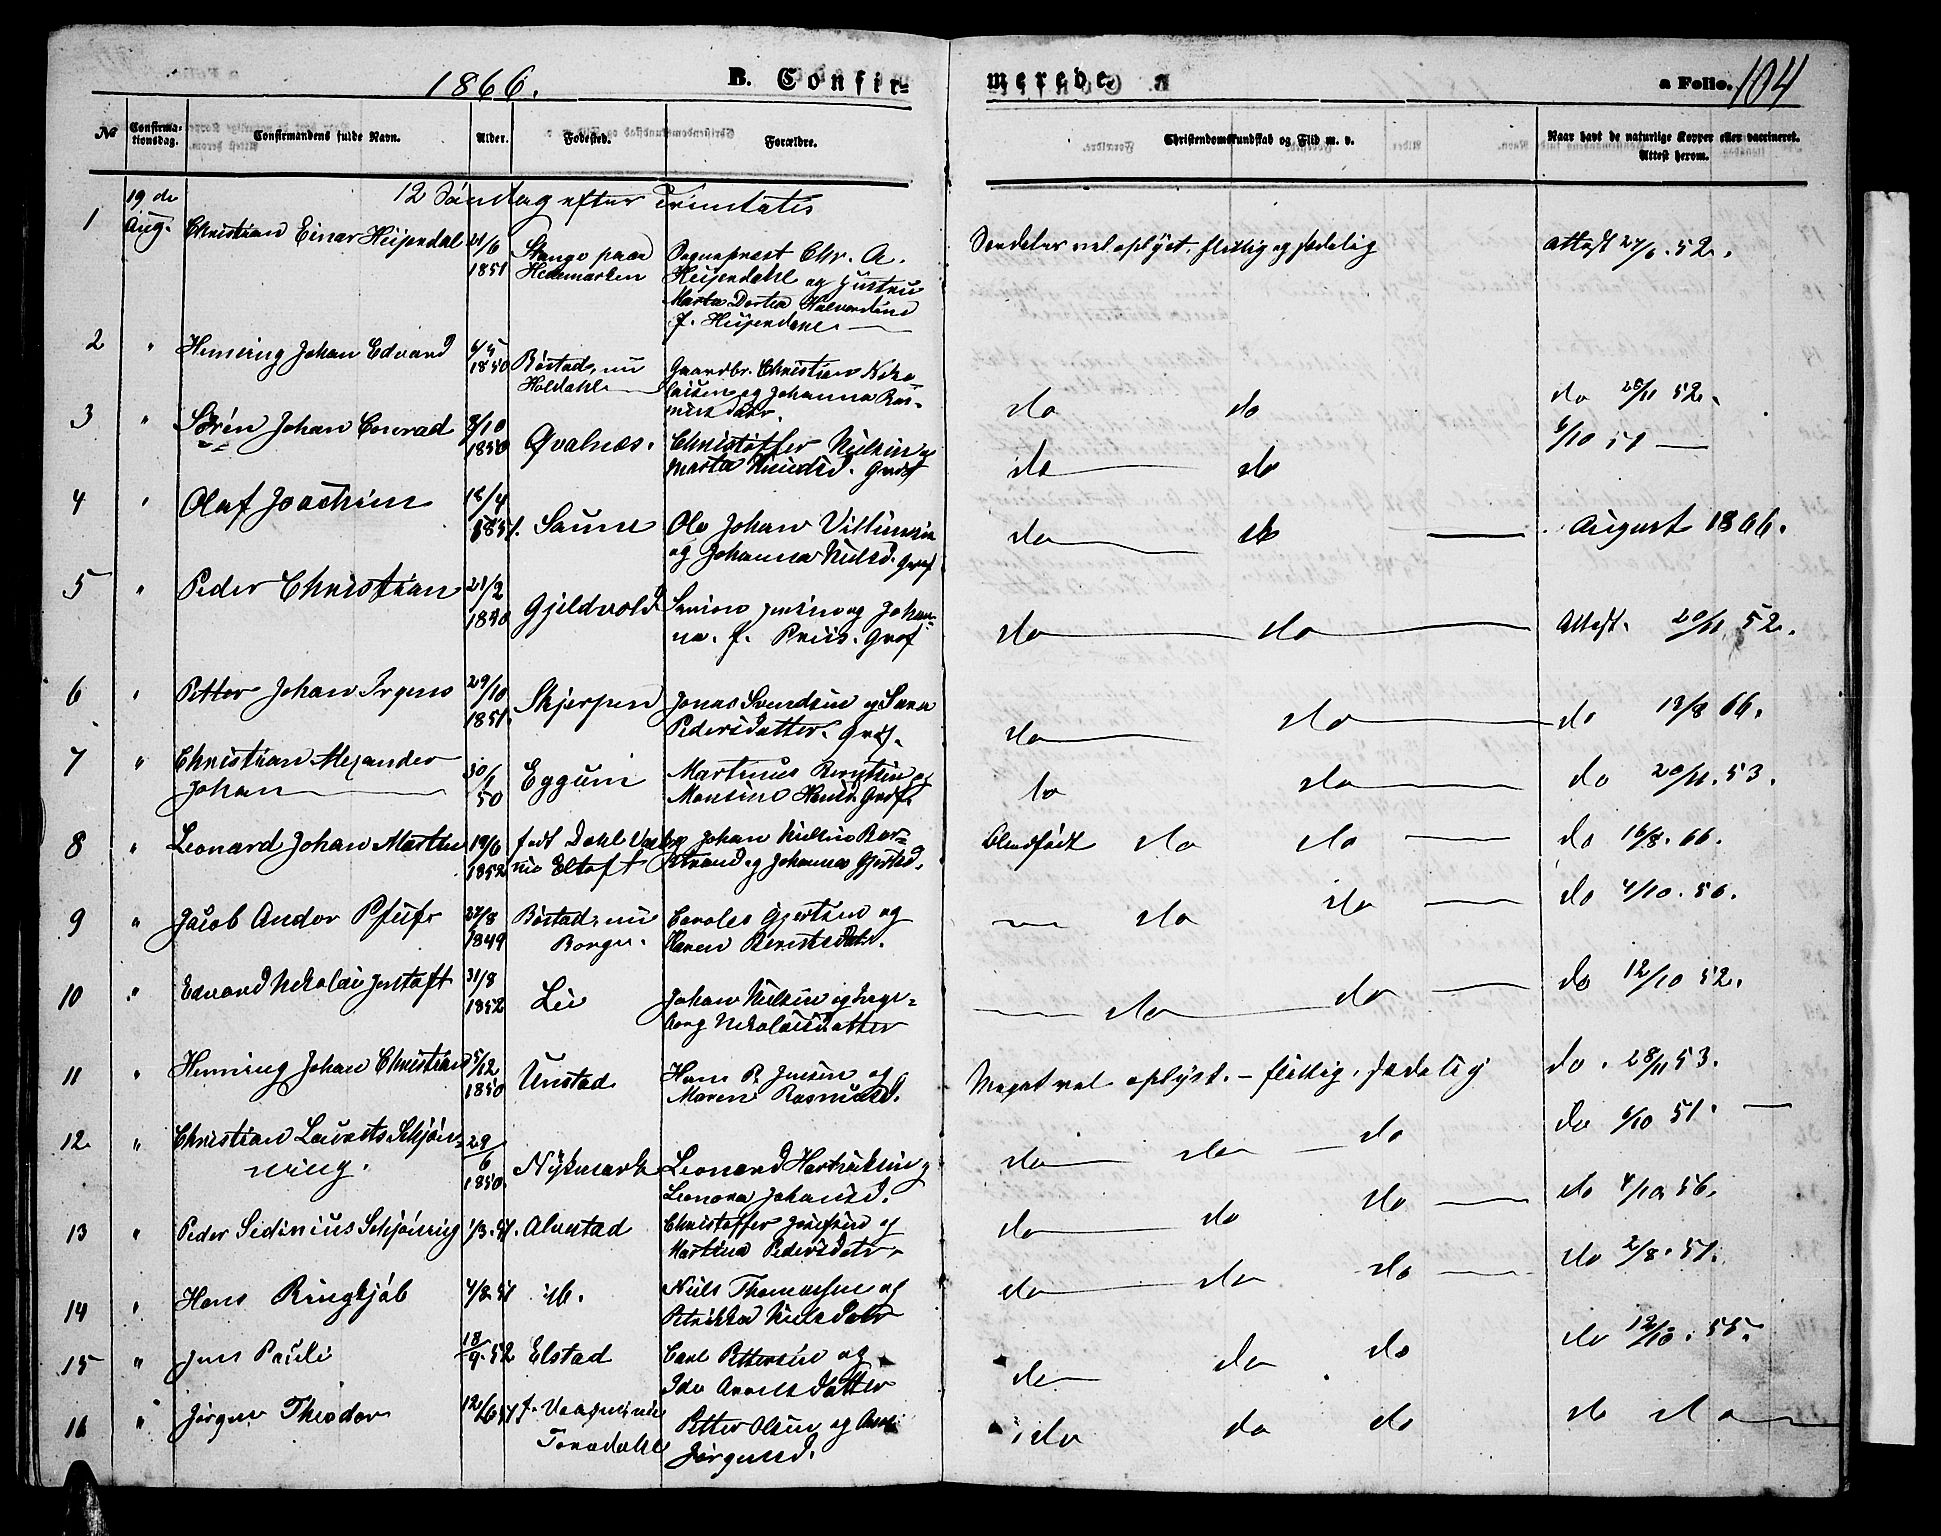 1866. B. Confir-
merede. a Folio. 104
№ Confirma- Confirmandens fulde Navn. Alder. Fødested. Forældre. Christendomskundskab og Flid m. v. Naar havt de naturlige Kopper eller vaccineret.
tionsdag. Attest herom.
19 de 12 Søndag efter Trinitatis
1 Aug. Christian Einar Heijerdal 21/6 Stange paa Sognepræst Chr. A. Særdeles vel oplyst, flittig og sædelig attest 27/6. 52.
1851 Hedemarken Heijerdahl og Hustru
Marta Dortea
f. Heijerdahl
2 " Henning Johan Edvard 1850 Bøstad, nu Gaardbr. Christian Niko-
Holdahl laisen og Johanna Ras-
musdatr. do do do 28/11 52.
3 " Søren Johan Conrad 8/10 6/10 51
1850 Øvalnæs. Christoffer Nielsen og
Marta Grøf do do
4 " Olaf Joachim 18/4
1851. Saune Ole Johan Villumsen do do August 1866.
og Johanna Nielsd. Grøf
5 " Peder Christian 21/2
1850 Gjeldvold Simon Jensen og Johan- do do Attest. 20/11 52.
na. f. Priis. Grøf
6 " Petter Johan Irgens 29/10 Skjerpen Jonas Svendsen og Sara do do do 19/8 66.
1851. Pedersdatter. Grøf.
7 " Christian Alexander 30/1 Eggum Martinus Berntsen og do do do 20/11. 53.
Johan 50 Grøf.
8 " Leonard Johan Martin 19/6 født Dahl Johan Nielsen Bor- Blindfødt do do do 16/8. 66.
1852 nu Eltoft strand og Johanna Gjertsd.
9 " Jacob Andor 27/8 Bøstad, nu Caroles Gjertsen og do do do 4/10. 56.
1849 Borge. Karen Berntsdatr.
10 " Edvard Nikolai Justoft 31/8 Lie Johan Nielsen og Inge- do do do 12/10 52.
1852 borg Nikolaisdatter
11 " Henning Johan Christian 5/12 Unstad Hans P. Jensen og Meget vel oplyst. - flittig. sædelig do. 28/11 53.
1850 Maren Rasmusd.
12 " Christian Laurits Schjøn- 29/6 Nykmark Leonard Hartviksen og do do do do 6/10 51.
ning. 1850. Leonora Johansd.
13 " Peder Sidinius Schjönning 1/3. 51. Alvstad Christoffer og do do do do 4/10 56.
Martina Pedersdatr.
14 " Hans Ringkjøb 4/8. 51 ib. Niels Thomassen og do do do do 2/8. 51.
Petrikka Nielsdatr
15 " Jens Pauli 18/9. 52 Elstad Carl Pettersen og do do do do 12/10. 55.
Ida datter
16 " Jørgen Theodor 12/6 51 f. Vaagen, nu Petter Olsen og Ane do do do do do
Tonsdahl Jørgensd.